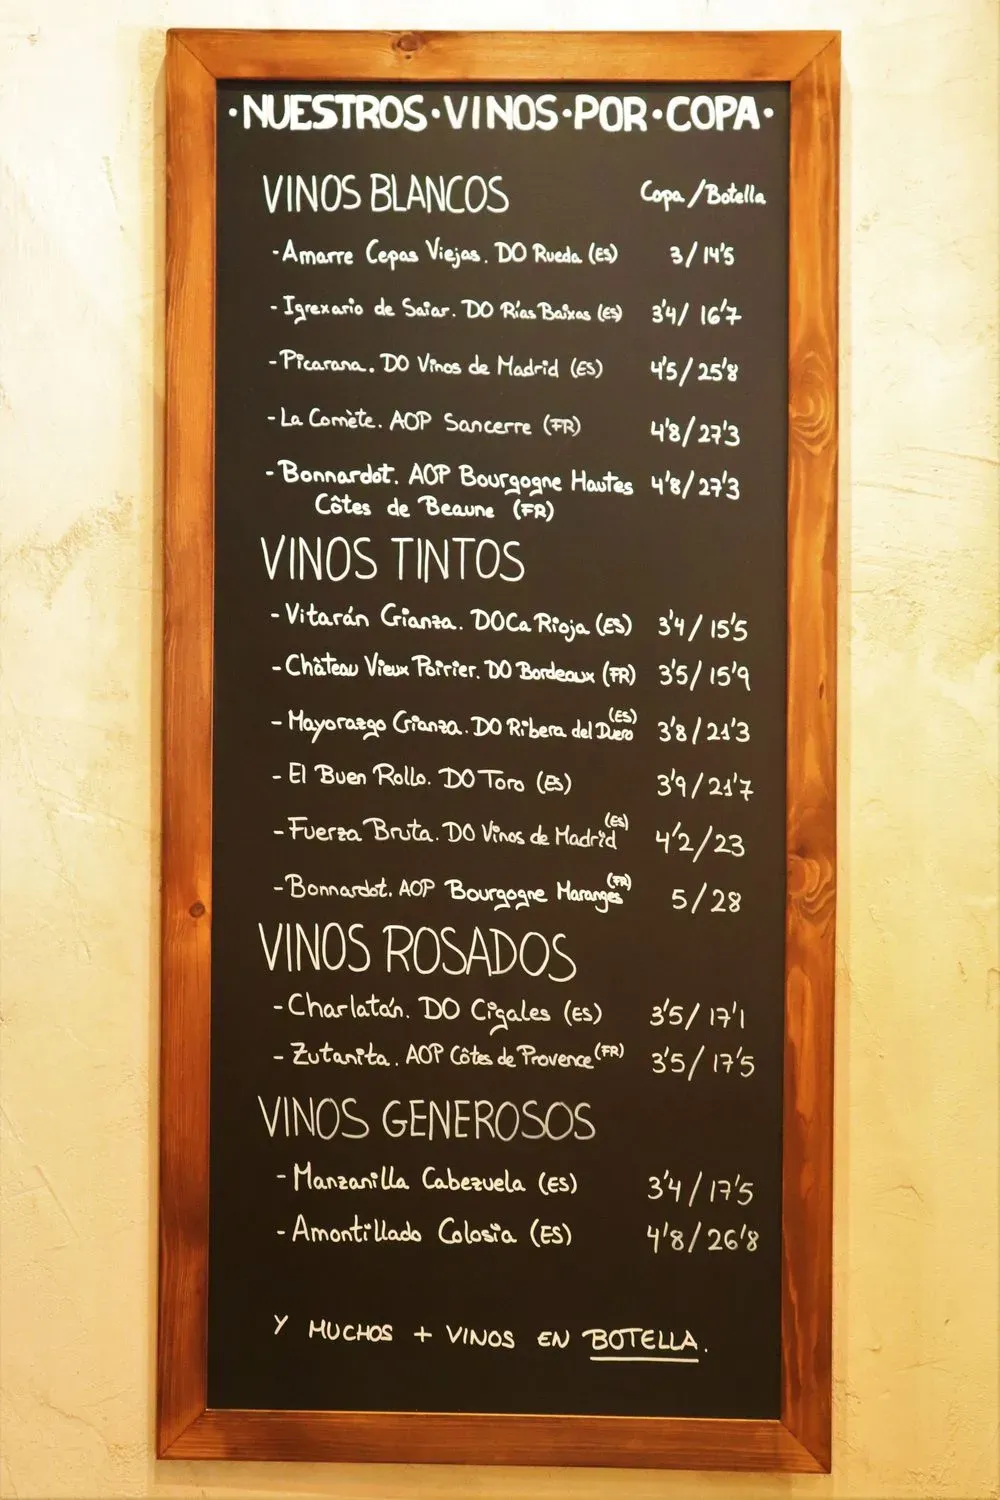 ·NUESTROS·VINOS·POR·COPA·
VINOS BLANCOS Copa/Botella
-Amarre Cepas Viejas. DO Rueda (ES) 3/14'5
-Igrexario de Saiar. DO Rías Baixas (ES) 3'4/16'7
-Picarana. DO Vinos de Madrid (ES) 4'5/25'8
-La Comète. AOP Sancerre (FR) 4'8/27'3
-Bonnardot. AOP Bourgogne Hautes 4'8/27'3
Côtes de Beaune (FR)
VINOS TINTOS
-Vitarán Crianza. DOCa Rioja (ES) 3'4/15'5
-Château Vieux Poirrier. DO Bordeaux (FR) 3'5/15'9
-Mayorazgo Crianza. DO Ribera del Duero (ES) 3'8/21'3
-El Buen Rollo. DO Toro (ES) 3'9/21'7
-Fuerza Bruta. DO Vinos de Madrid (ES) 4'2/23
-Bonnardot. AOP Bourgogne Maranges (FR) 5/28
VINOS ROSADOS
-Charlatán. DO Cigales (ES) 3'5/17'1
-Zutanita. AOP Côtes de Provence (FR) 3'5/17'5
VINOS GENEROSOS
-Manzanilla Cabezuela (ES) 3'4/17'5
-Amontillado Colosia (ES) 4'8/26'8
Y MUCHOS + VINOS EN BOTELLA.